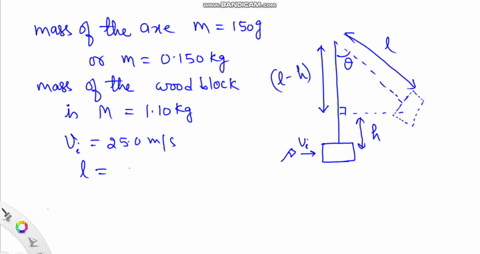 WWW.BANDICAM.COM
mass of the axe m = 150g
or m = 0.150 kg
mass of the wood block
is M = 1.10 kg
Vi = 25.0 m/s
l =
(l-h)
θ
l
h
Vi